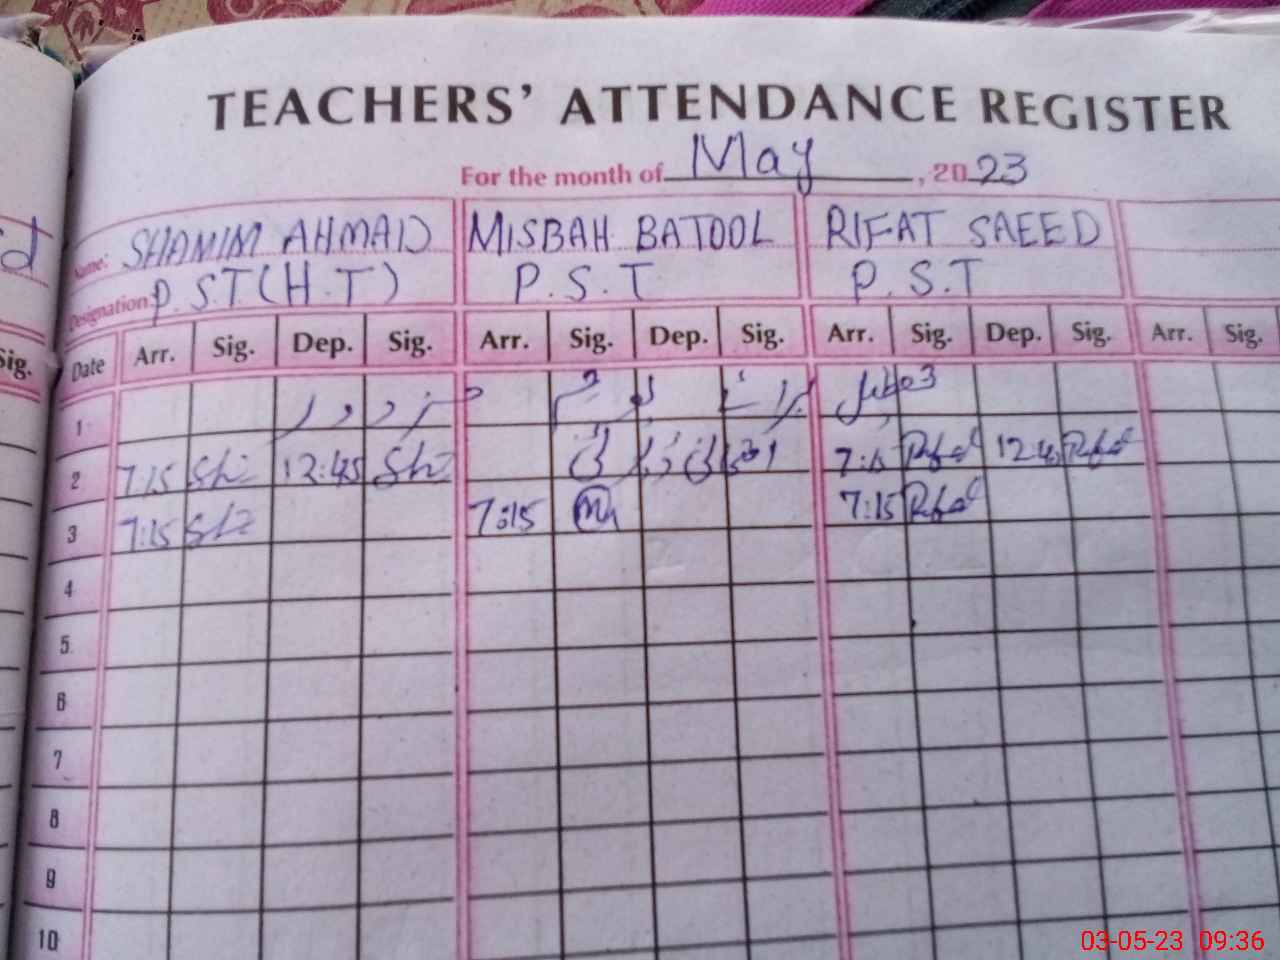 TEACHERS' ATTENDANCE REGISTER
For the month of May, 2023
Name: SHAMIM AHMAD MISBAH BATOOL RIFAT SAEED
Designation: P.S.T(H.T) P.S.T P.S.T
Sig. Date Arr. Sig. Dep. Sig. Arr. Sig. Dep. Sig. Arr. Sig. Dep. Sig. Arr. Sig.
1
2 7:15 12:45 7:15 12:45
3 7:15 7:15 7:15
4
5
6
7
8
9
10
03-05-23 09:36